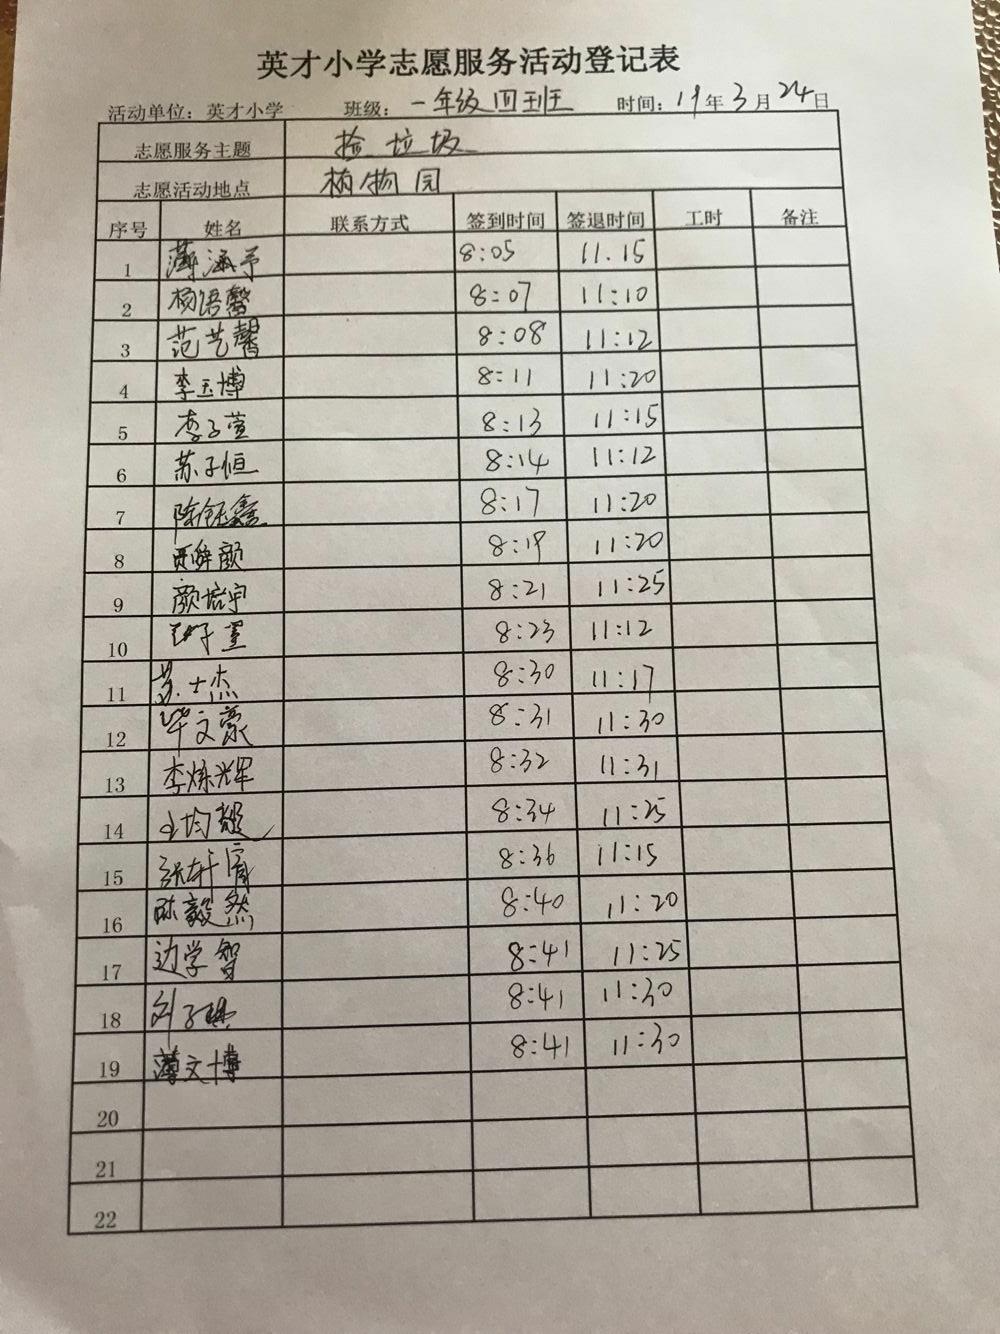 英才小学志愿服务活动登记表
活动单位：英才小学 班级：一年级四班 时间：19年3月24日
志愿服务主题 捡垃圾
志愿活动地点 植物园
序号 姓名 联系方式 签到时间 签退时间 工时 备注
1 薄涵予 8:05 11.15
2 杨语馨 8:07 11:10
3 范艺馨 8:08 11:12
4 李玉博 8:11 11:20
5 李子萱 8:13 11:15
6 苏子恒 8:14 11:12
7 陈钰鑫 8:17 11:20
8 贾舜颜 8:19 11:20
9 颜培宇 8:21 11:25
10 子萱 8:23 11:12
11 苏士杰 8:30 11:17
12 毕文豪 8:31 11:30
13 李炼辉 8:32 11:31
14 均 8:34 11:25
15 张轩 8:36 11:15
16 陈毅然 8:40 11:20
17 边学智 8:41 11:25
18 刘子 8:41 11:30
19 薄文博 8:41 11:30
20
21
22